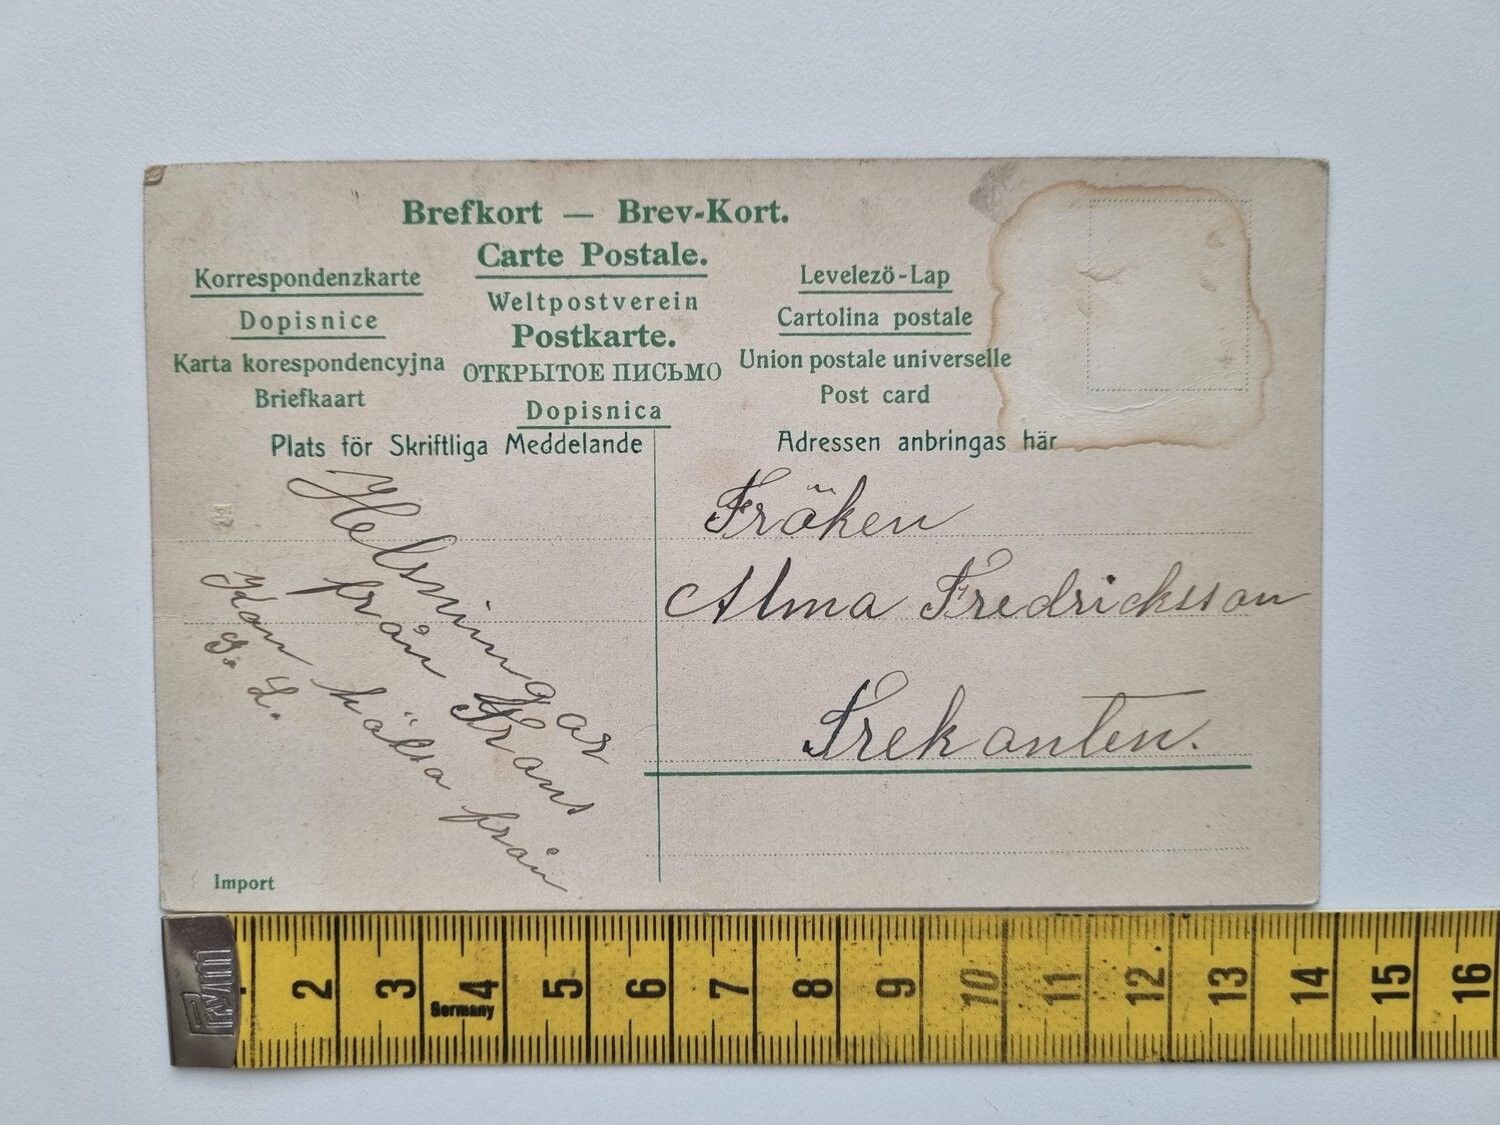 Brefkort — Brev-Kort.
Carte Postale.
Korrespondenzkarte
Weltpostverein
Levelezö-Lap
Dopisnice
Postkarte.
Cartolina postale
Karta korespondencyjna
ОТКРЫТОЕ ПИСЬМО
Union postale universelle
Briefkaart
Dopisnica
Post card
Plats för Skriftliga Meddelande
Adressen anbringas här
Helsningar
från Frans
Kan hälsa från
G. L.
Fröken
Alma Fredricksson
Trekanten.
Import
2 3 4 5 6 7 8 9 10 11 12 13 14 15 16
Germany